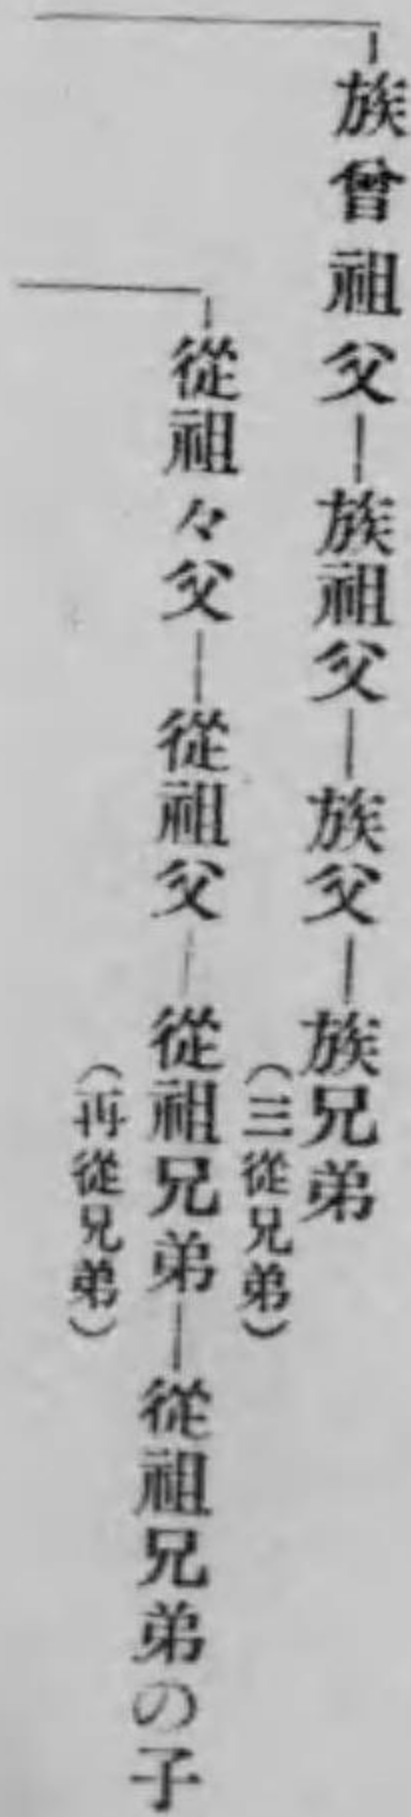 族曾祖父―族祖父―族父―族兄弟
(三從兄弟)
從祖々父―從祖父―從祖兄弟―從祖兄弟の子
(再從兄弟)